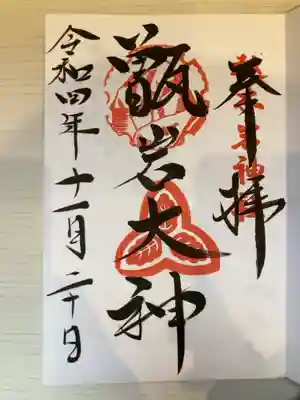 奉拝
甑岩大神
令和四年十一月二十日